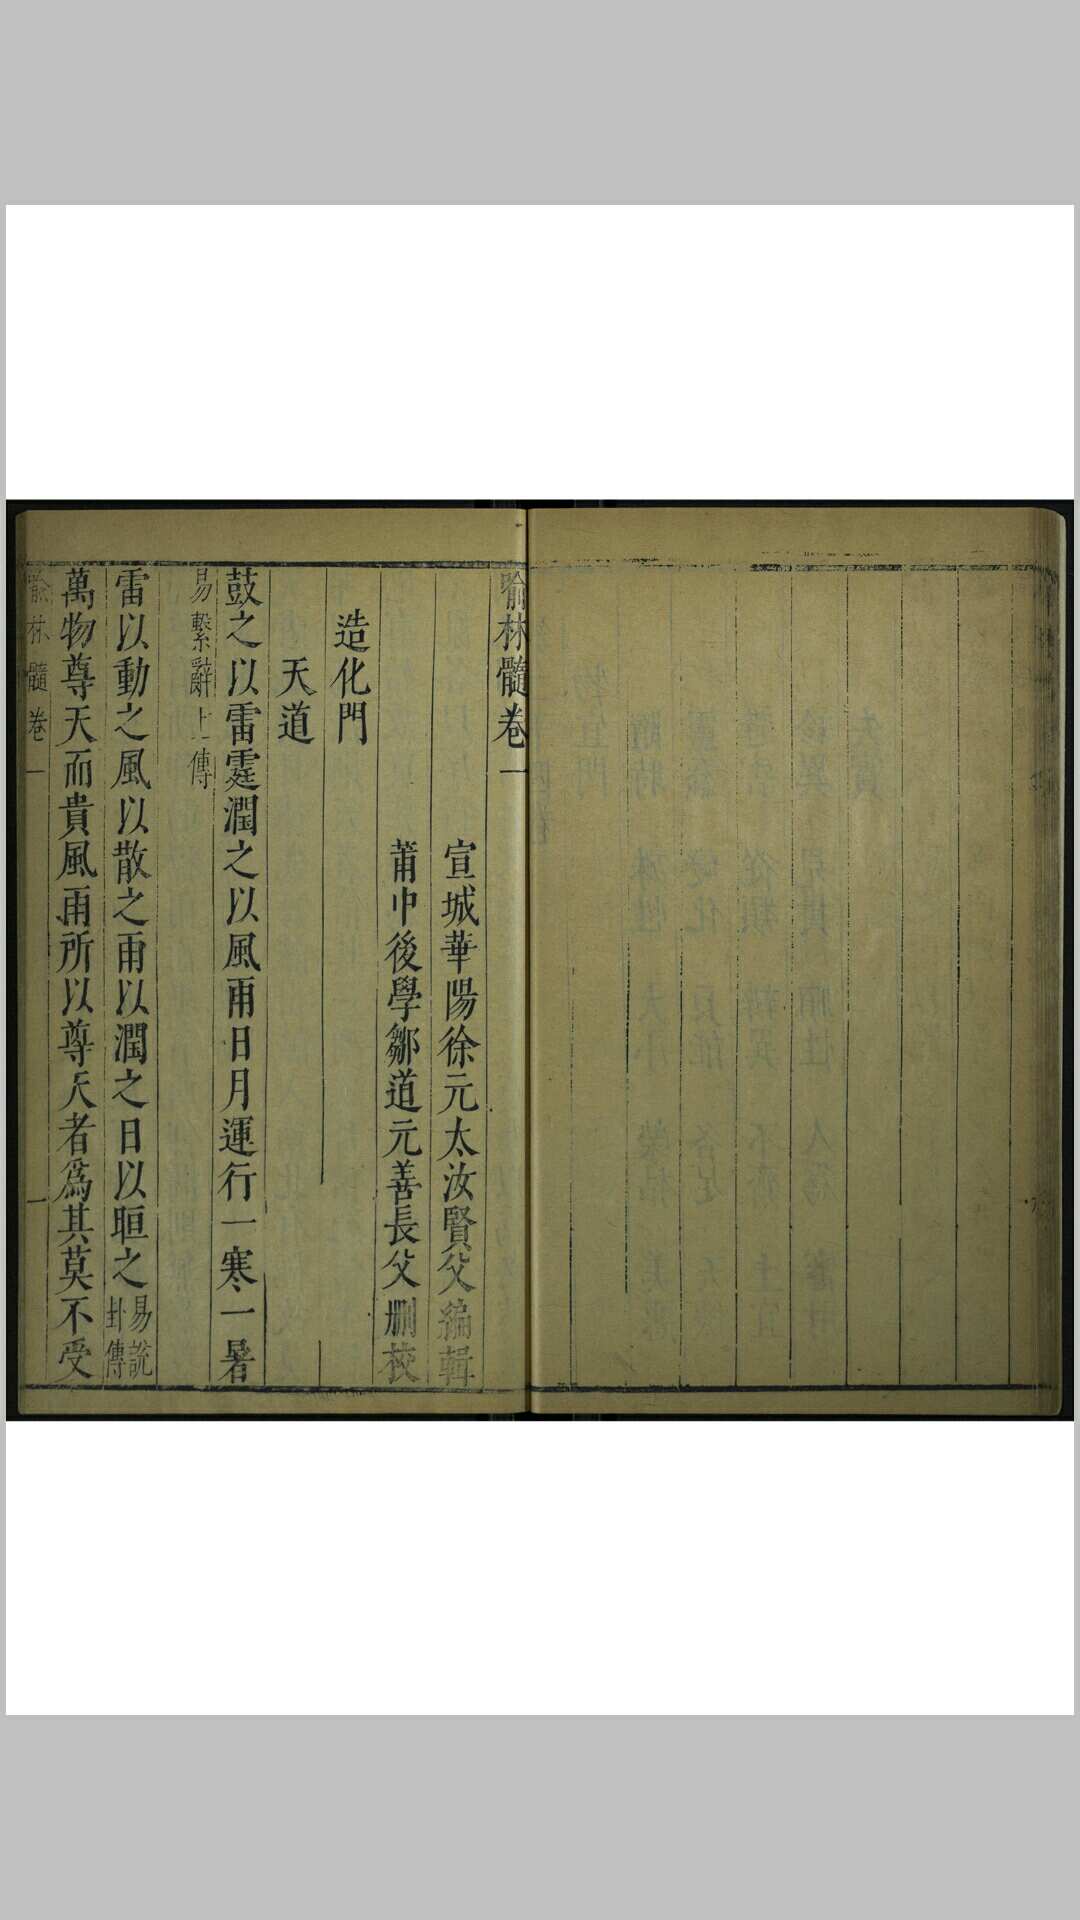 喻林髓卷一
宣城華陽徐元太汝賢父編輯
莆中後學鄒道元善長父删校
造化門
天道
鼓之以雷霆潤之以風雨日月運行一寒一暑
易繫辭上傳
雷以動之風以散之雨以潤之日以晅之易說卦傳
萬物尊天而貴風雨所以尊天者爲其莫不受
喻林髓 卷一 一